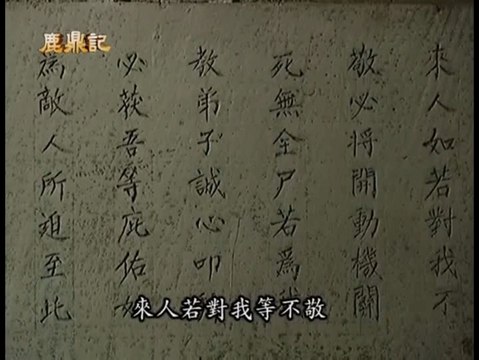 鹿鼎記
來人如若對我不
敬必將開動機關
死無全尸若為我
教弟子誠心叩
必获吾等庇佑如
為敵人所迫至此
來人若對我等不敬